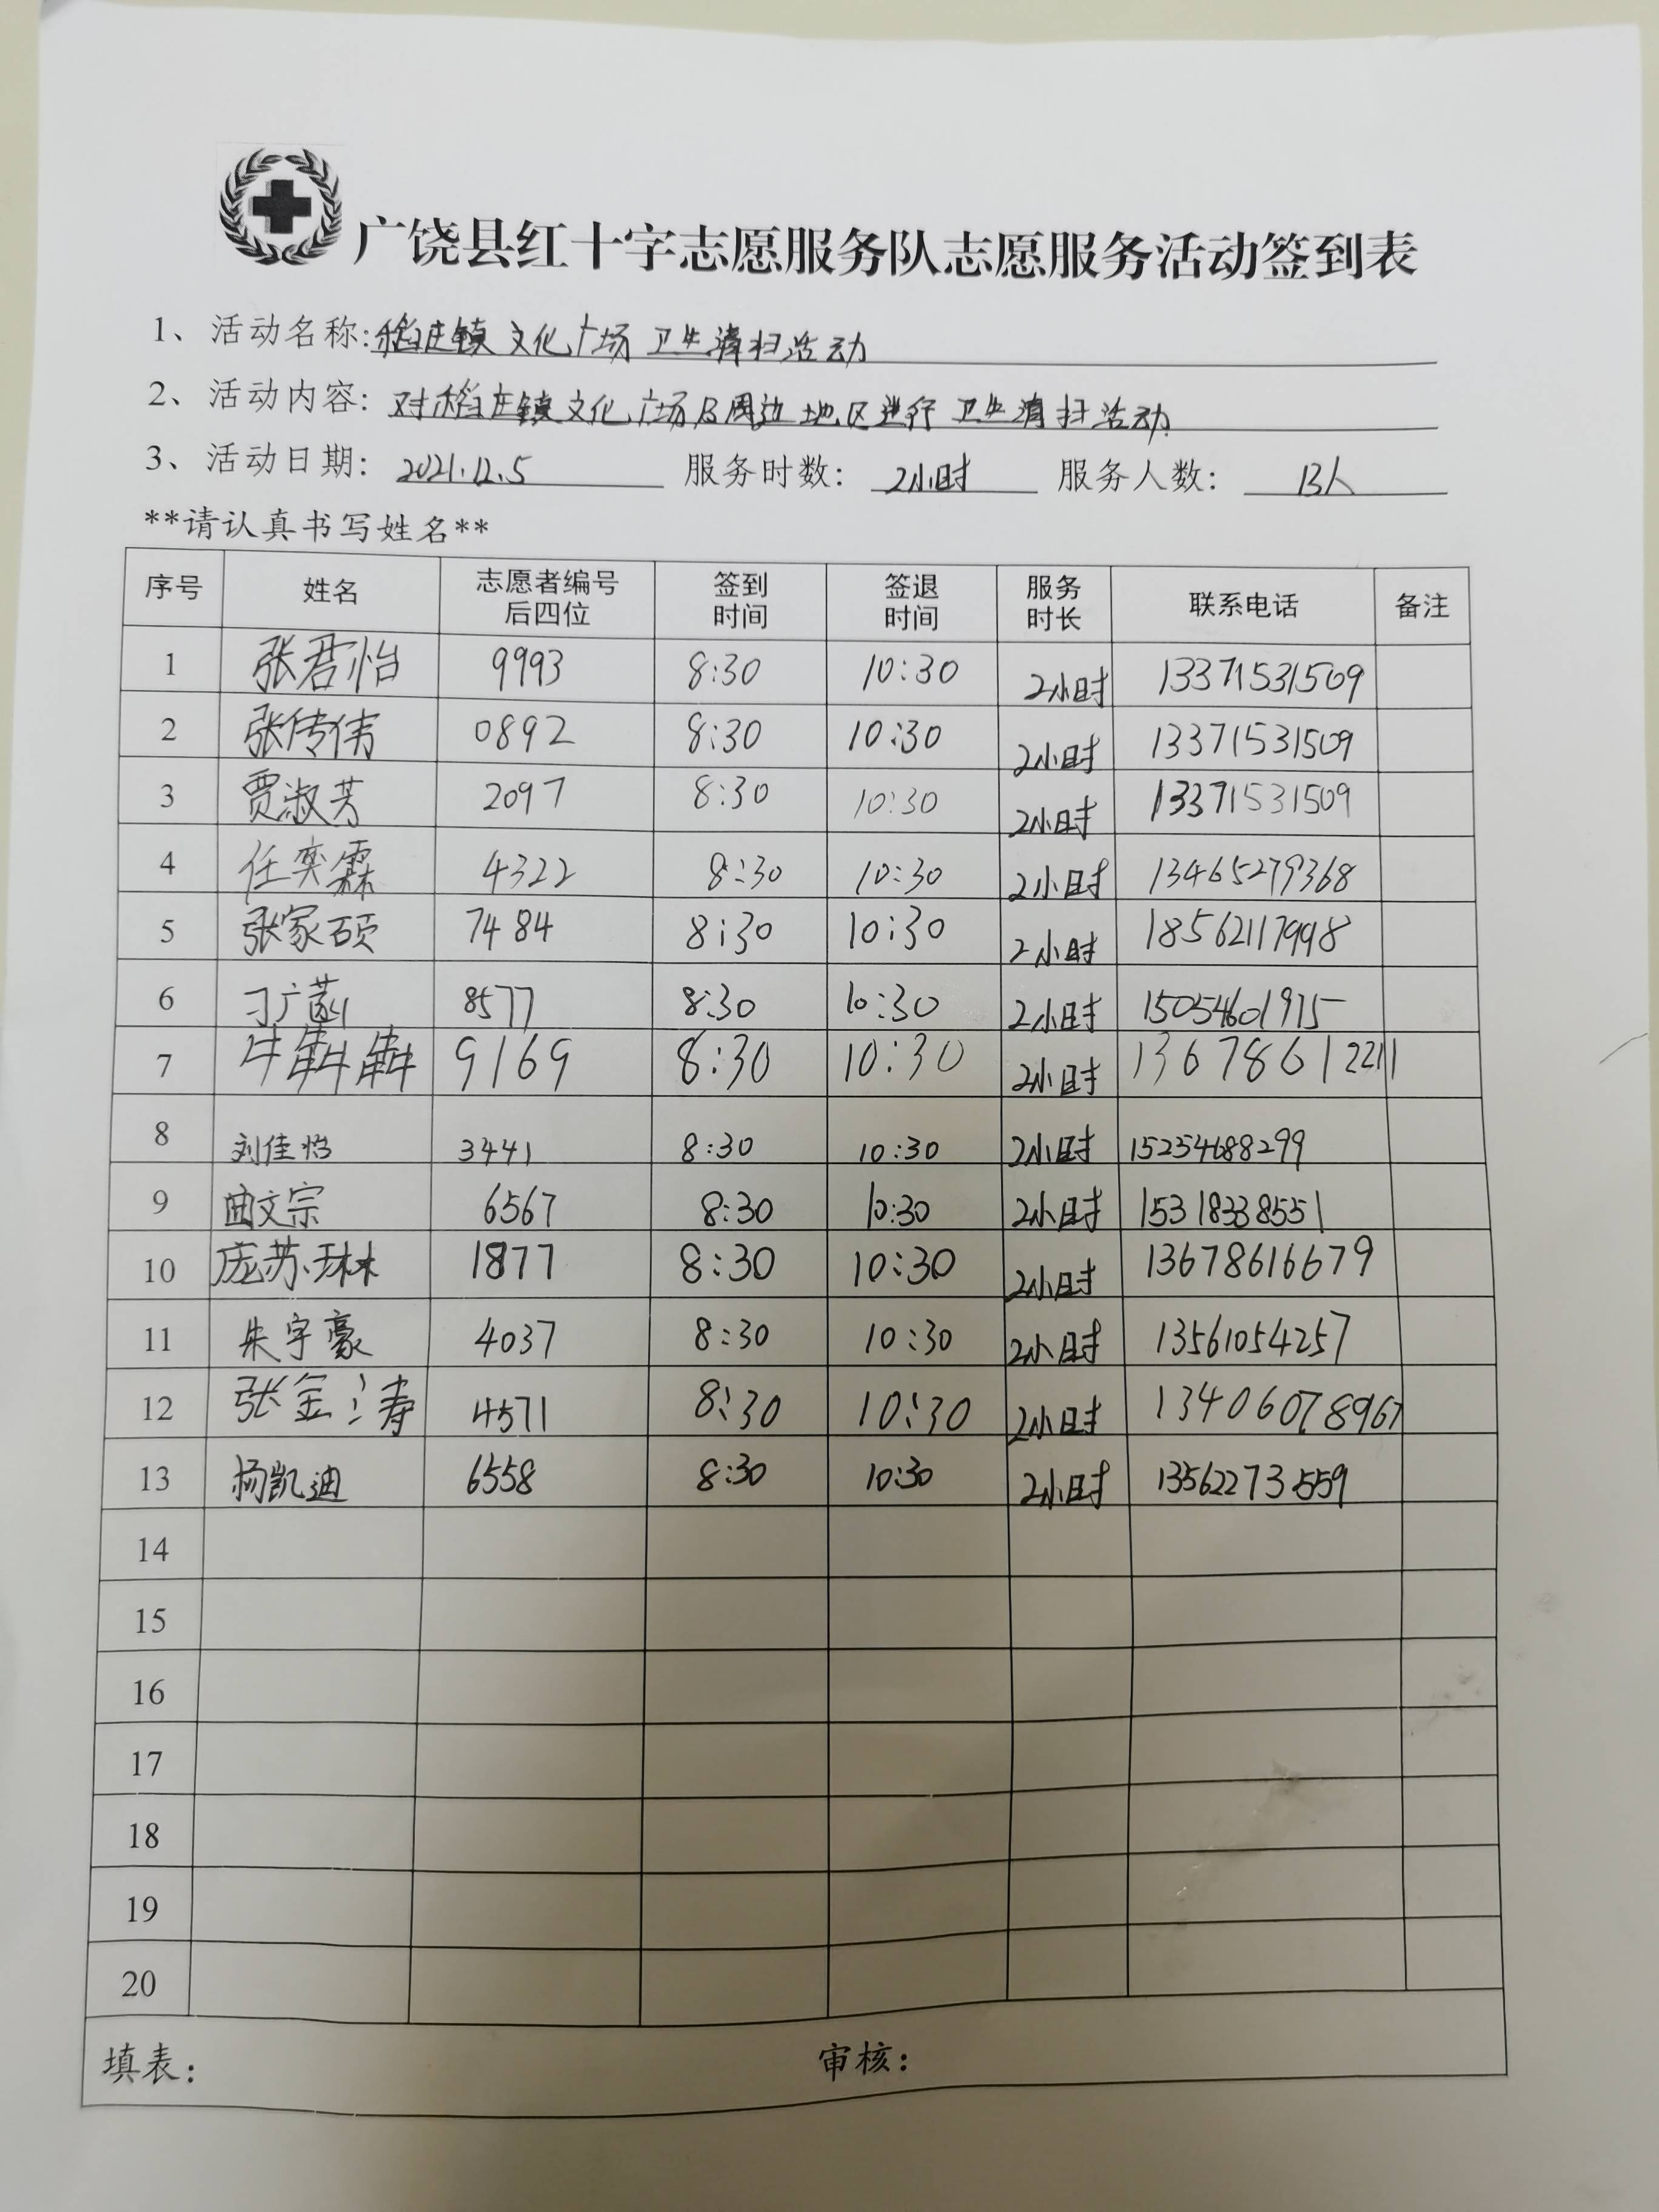 广饶县红十字志愿服务队志愿服务活动签到表
1、活动名称:稻庄镇文化广场卫生清扫活动
2、活动内容: 对稻庄镇文化广场及周边地区进行卫生清扫活动
3、活动日期: 2021.12.5 服务时数: 2小时 服务人数: 13人
**请认真书写姓名**
序号 姓名 志愿者编号后四位 签到时间 签退时间 服务时长 联系电话 备注
1 张君怡 9993 8:30 10:30 2小时 13371531509
2 张传伟 0892 8:30 10:30 2小时 13371531509
3 贾淑芳 2097 8:30 10:30 2小时 13371531509
4 任奕霖 4322 8:30 10:30 2小时 13465279368
5 张家硕 7484 8:30 10:30 2小时 18562117998
6 刁广 8577 8:30 10:30 2小时 15054601975
7 牛犇犇 9169 8:30 10:30 2小时 13678612211
8 刘佳怡 3441 8:30 10:30 2小时 15254688299
9 曲文宗 6567 8:30 10:30 2小时 15318338551
10 庞苏琳 1877 8:30 10:30 2小时 13678616679
11 朱宇豪 4037 8:30 10:30 2小时 13561054257
12 张金涛 4571 8:30 10:30 2小时 13406078967
13 杨凯迪 6558 8:30 10:30 2小时 13562273559
14
15
16
17
18
19
20
填表: 审核: